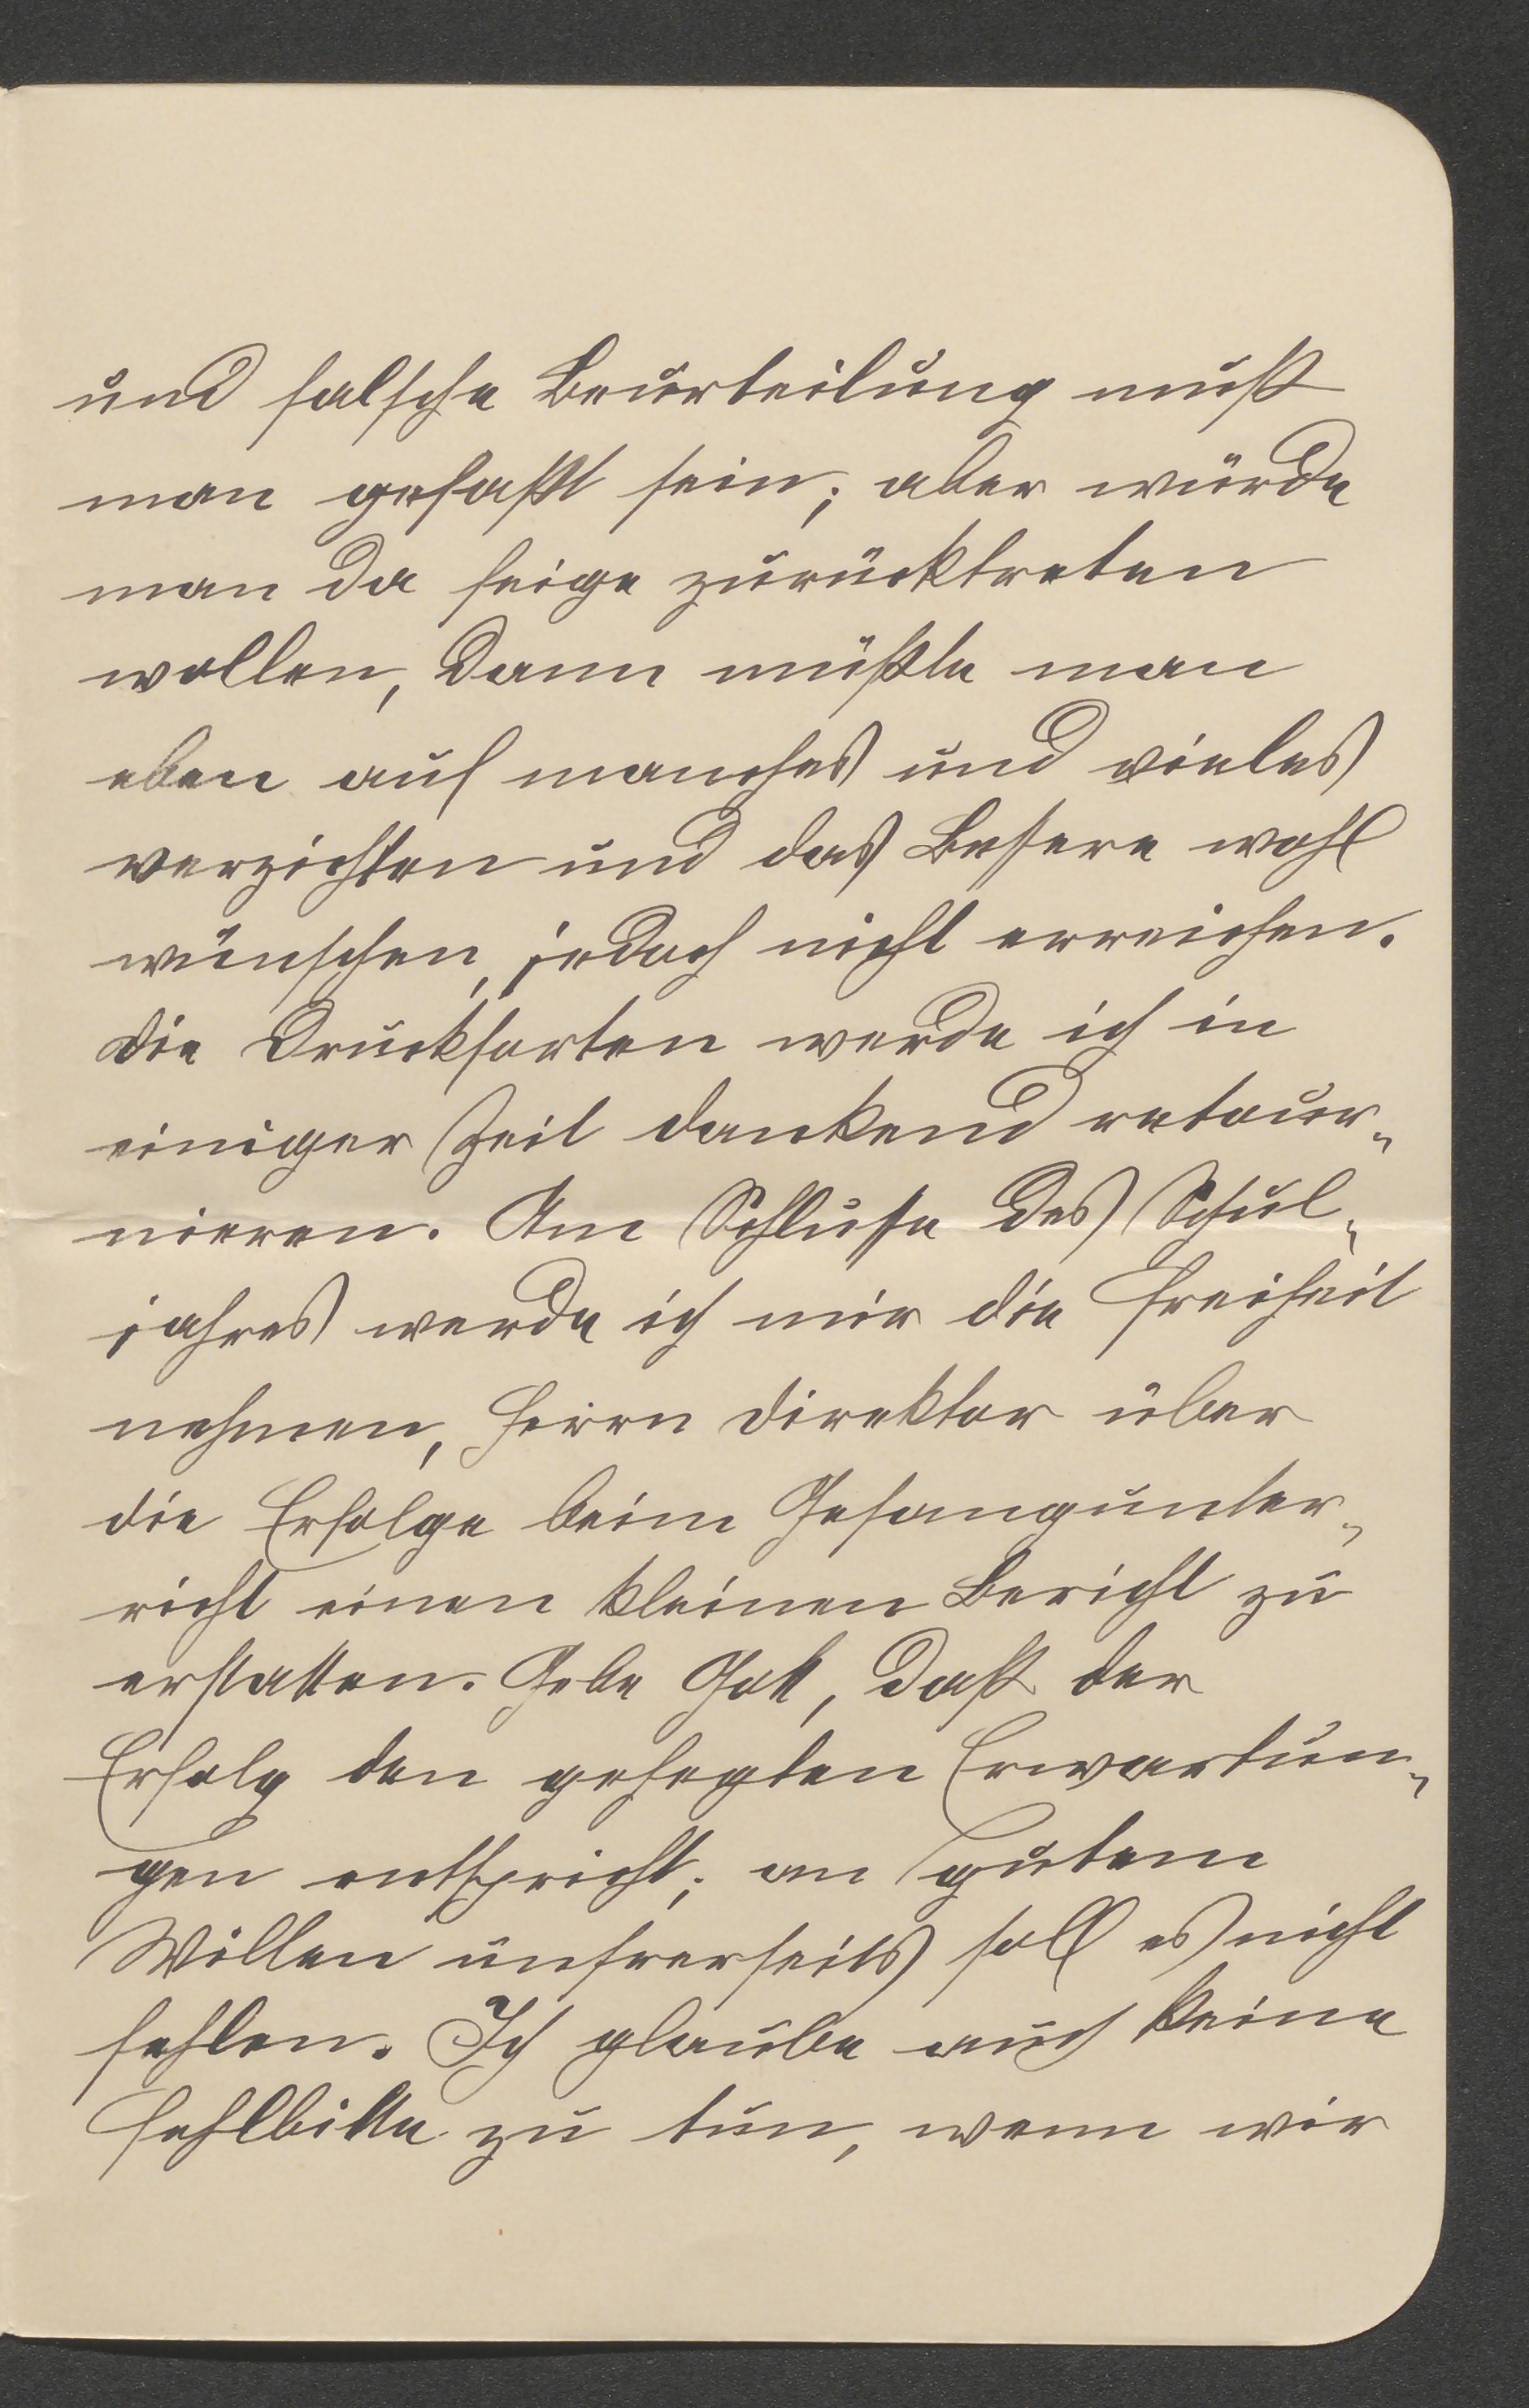 und falsche Beurteilung muß
man gefaßt sein; aber würde
man da feige zurücktreten
wollen, dann müßte man
eben auf manches und vieles
verzichten und das Bessere wohl
wünschen, jedoch nicht erreichen.
Die Drucksorten werde ich in
einiger Zeit dankend retour-
nieren. Am Schlusse des Schul-
jahres werde ich mir die Freiheit
nehmen, Herrn Direktor über
die Erfolge beim Gesangunter-
richt einen kleinen Bericht zu
erstatten. Gebe Gott, daß der
Erfolg den gehegten Erwartun-
gen entspricht; an gutem
Willen unsrerseits soll es nicht
fehlen. Ich glaube auch keine
Fehlbitte zu tun, wenn wir